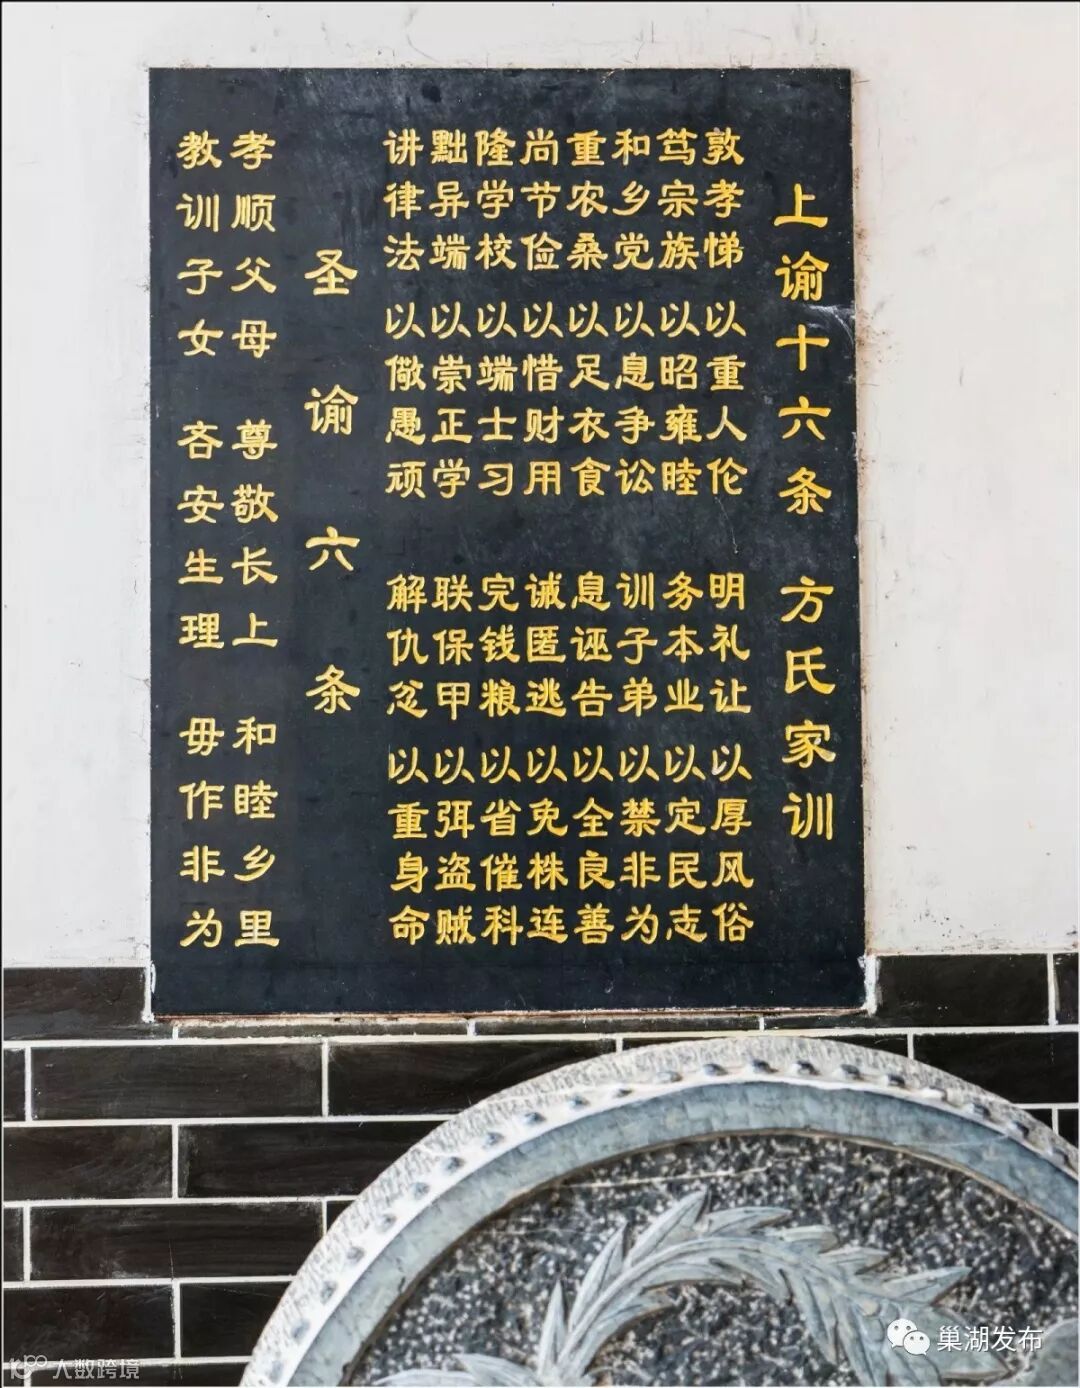 上谕十六条 方氏家训
敦孝悌 以重人伦 明礼让 以厚风俗
笃宗族 以昭雍睦 务本业 以定民志
和乡党 以息争讼 训子弟 以禁非为
重农桑 以足衣食 息诬告 以全良善
尚节俭 以惜财用 诫匿逃 以免株连
隆学校 以端士习 完钱粮 以省催科
黜异端 以崇正学 联保甲 以弭盗贼
讲律法 以儆愚顽 解仇忿 以重身命
圣谕六条
孝顺父母 尊敬长上 和睦乡里
教训子女 吝安生理 毋作非为
巢湖发布
大数跨境